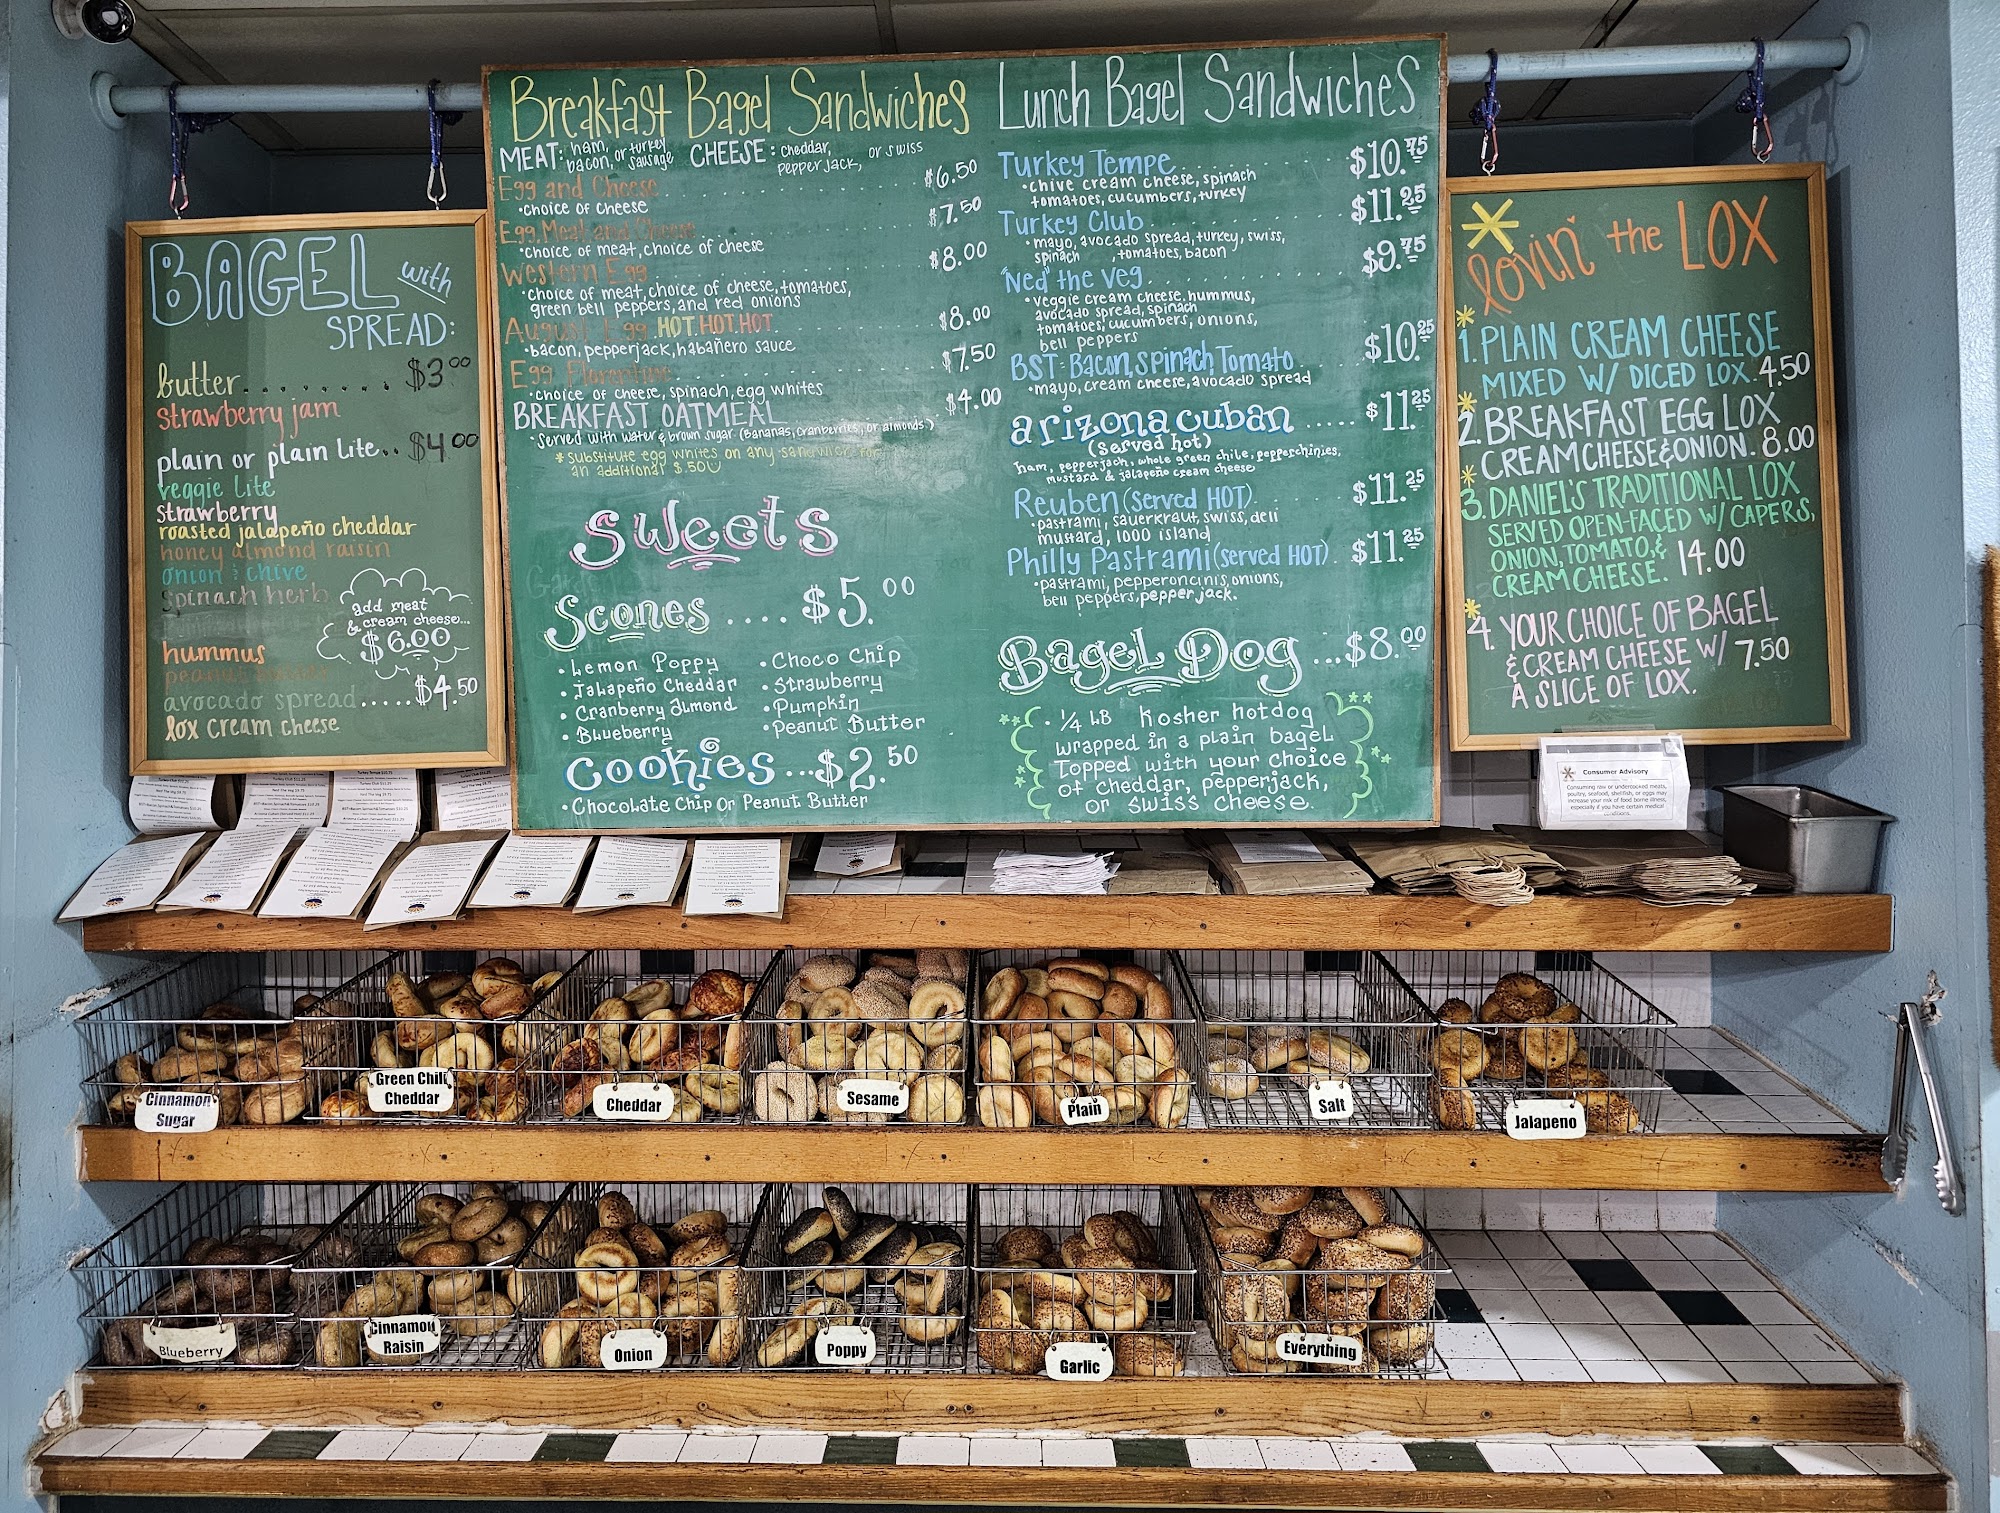 BAGEL with
SPREAD:
butter......... $3.00
strawberry jam
plain or plain lite.. $4.00
veggie lite
strawberry
roasted jalapeño cheddar
honey almond raisin
onion & chive
spinach herb
add meat
& cream cheese...
$6.00
hummus
avocado spread.....$4.50
lox cream cheese
Breakfast Bagel Sandwiches
MEAT: ham, bacon, or turkey sausage CHEESE: cheddar, pepper jack, or swiss
Egg and Cheese $6.50
•choice of cheese
Egg, Meat and Cheese $7.50
•choice of meat, choice of cheese
Western Egg $8.00
•choice of meat, choice of cheese, tomatoes,
green bell peppers, and red onions
August Egg HOT.HOT.HOT $8.00
•bacon, pepperjack, habañero sauce
Egg Florentine $7.50
•choice of cheese, spinach, egg whites
BREAKFAST OATMEAL $4.00
•served with water & brown sugar (Bananas, Cranberries, or almonds.)
*substitute egg whites on any sandwich for
an additional $.50
Sweets
Scones .... $5.00
•Lemon Poppy
•Jalapeño Cheddar
•Cranberry Almond
•Blueberry
•Choco Chip
•Strawberry
•Pumpkin
Peanut Butter
Cookies...$2.50
•Chocolate Chip Or Peanut Butter
Lunch Bagel Sandwiches
Turkey Tempe $10.75
•chive cream cheese, spinach
tomatoes, cucumbers, turkey
Turkey Club $11.25
•mayo, avocado spread, turkey, swiss,
spinach ,tomatoes, bacon
"Ned" the veg $9.75
•veggie cream cheese, hummus,
avocado spread, spinach
tomatoes, cucumbers, onions,
bell peppers
BST-Bacon, Spinach, Tomato $10.25
•mayo, cream cheese, avocado spread
arizona cuban ..... $11.25
(served hot)
ham, pepperjack, whole green chile, pepperchinies,
mustard & jalapeño cream cheese
Reuben (served HOT) $11.25
•pastrami, sauerkraut, swiss, deli
mustard, 1000 island
Philly Pastrami (served HOT) $11.25
•pastrami, pepperoncinis, onions,
bell peppers, pepper jack.
Bagel Dog ...$8.00
•1/4 LB Kosher hotdog
wrapped in a plain bagel
Topped with your choice
of cheddar, pepperjack,
or swiss cheese.
lovin' the LOX
1. PLAIN CREAM CHEESE
MIXED W/ DICED LOX. 4.50
2. BREAKFAST EGG LOX
CREAM CHEESE & ONION. 8.00
3. DANIEL'S TRADITIONAL LOX
SERVED OPEN-FACED W/ CAPERS,
ONION, TOMATO, &
CREAM CHEESE. 14.00
4. YOUR CHOICE OF BAGEL
& CREAM CHEESE W/ 7.50
A SLICE OF LOX.
Consumer Advisory
Consuming raw or undercooked meats,
poultry, seafood, shellfish, or eggs may
increase your risk of food borne illness,
especially if you have certain medical
conditions.
Cinnamon
Sugar
Green Chili
Cheddar
Cheddar
Sesame
Plain
Salt
Jalapeno
Blueberry
Cinnamon
Raisin
Onion
Poppy
Garlic
Everything